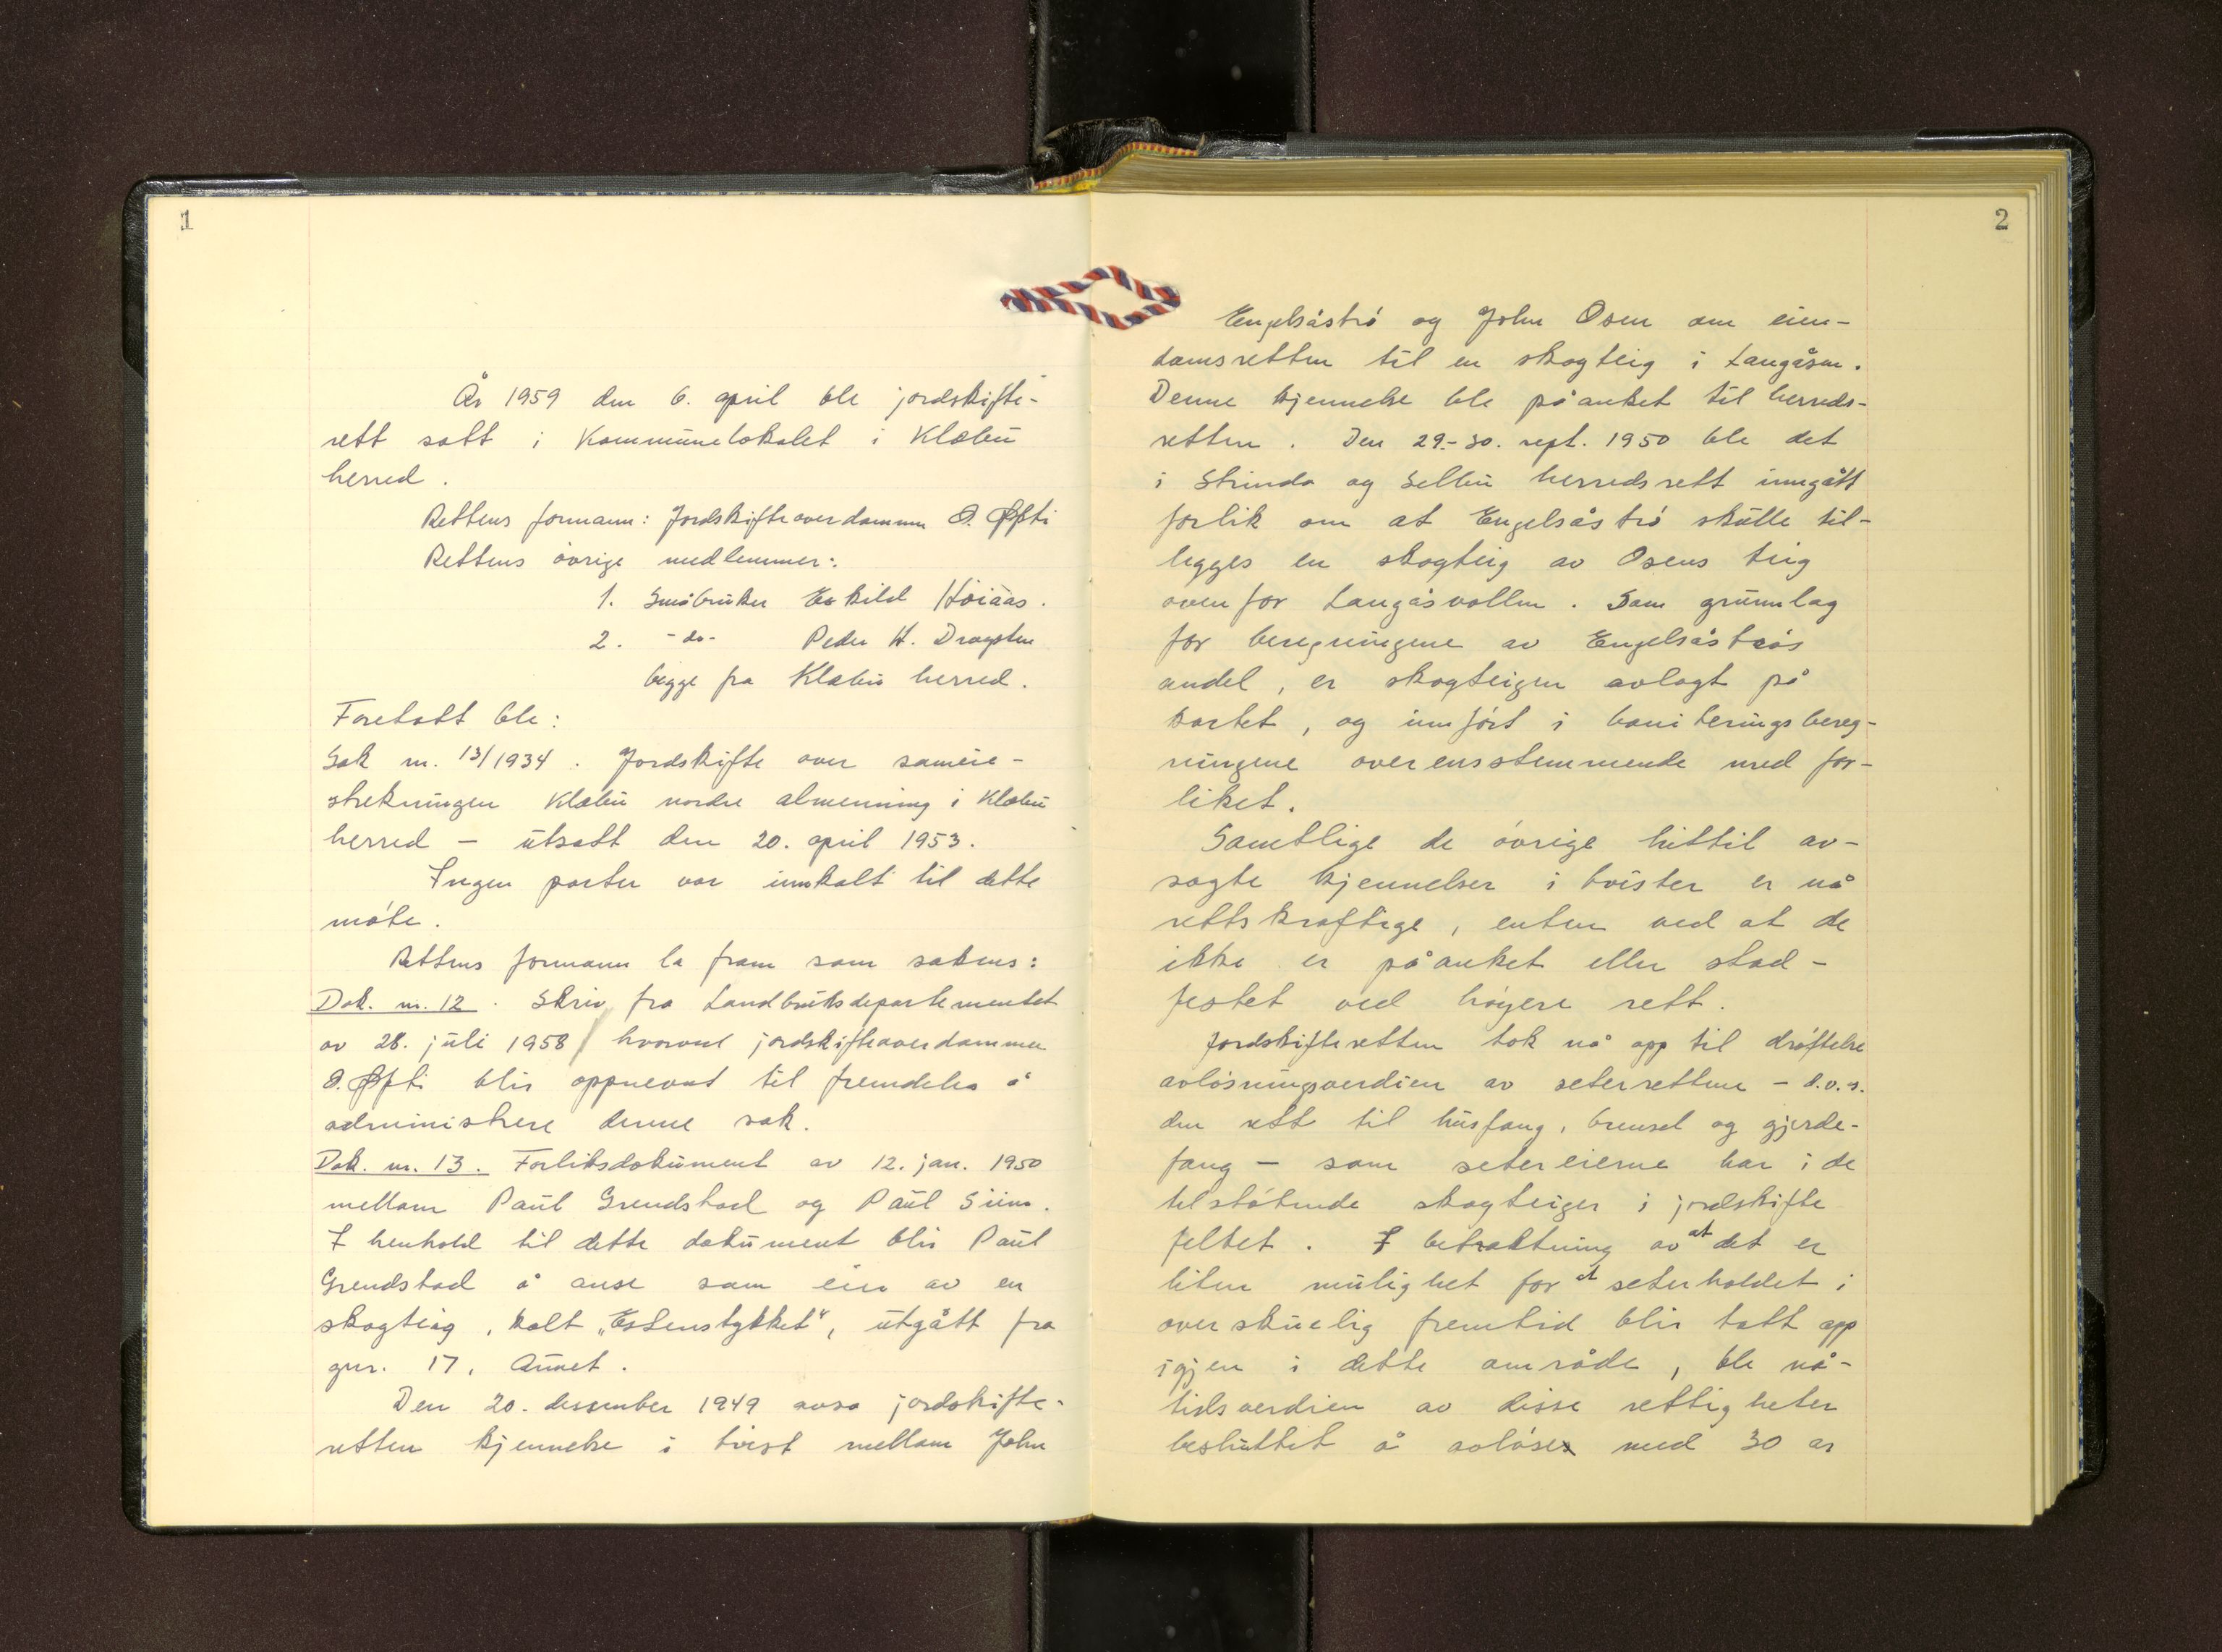 1
År 1959 den 6. april ble jordskifte-
rett satt i Kommunelokalet i Klæbu
herred.
Rettens formann: Jordskifteoverdommer O. Øfsti
Rettens øvrige medlemmer:
1. Småbruker Eskild Høiaas.
2. -do- Peder H. Dragsten
begge fra Klæbu herred.
Foretatt ble:
Sak nr. 13/1934. Jordskifte over sameie-
strekningen Klæbu nordre almenning i Klæbu
herred — utsatt den 20. april 1953.
Ingen parter var innkalt til dette
møte.
Rettens formann la fram som sakens:
Dok. nr. 12. Skriv fra Landbruksdepartementet
av 28. juli 1958 hvorved jordskifteoverdommer
O. Øfsti blir oppnevnt til fremdeles å
administrere denne sak.
Dok. nr. 13. Forliksdokument av 12. jan. 1950
mellom Paul Grendstad og Paul Siem.
I henhold til dette dokument blir Paul
Grendstad å anse som eier av en
skogteig, kalt „Estenstykket", utgått fra
gnr. 17, Aunet.
Den 20. desember 1949 avsa jordskifte-
retten kjennelse i tvist mellom John
2
Engelsåstrø og John Osen om eien-
domsretten til en skogteig i Langåsen.
Denne kjennelse ble påanket til herreds-
retten. Den 29.-30. sept. 1950 ble det
i Strinda og Selbu herredsrett inngått
forlik om at Engelsåstrø skulle til-
legges en skogteig av Osens teig
ovenfor Langåsvollen. Som grunnlag
for beregningene av Engelsåstrøs
andel, er skogteigen avlagt på
kartet, og innført i boniteringsbereg-
ningene overensstemmende med for-
liket.
Samtlige de øvrige hittil av-
sagte kjennelser i tvister er nå
rettskraftige, enten ved at de
ikke er påanket eller stad-
festet ved høyere rett.
Jordskifteretten tok nå opp til drøftelse
avløsningsverdien av seterrettene – d.v.s.
den rett til husfang, brensel og gjerde-
fang – som setereierne har i de
tilstøtende skogteiger i jordskifte
feltet. I betraktning av at det er
liten mulighet for at seterholdet i
overskuelig fremtid blir tatt opp
igjen i dette område, ble nå-
tidsverdien av disse rettigheter
besluttet å avløses med 30 ar